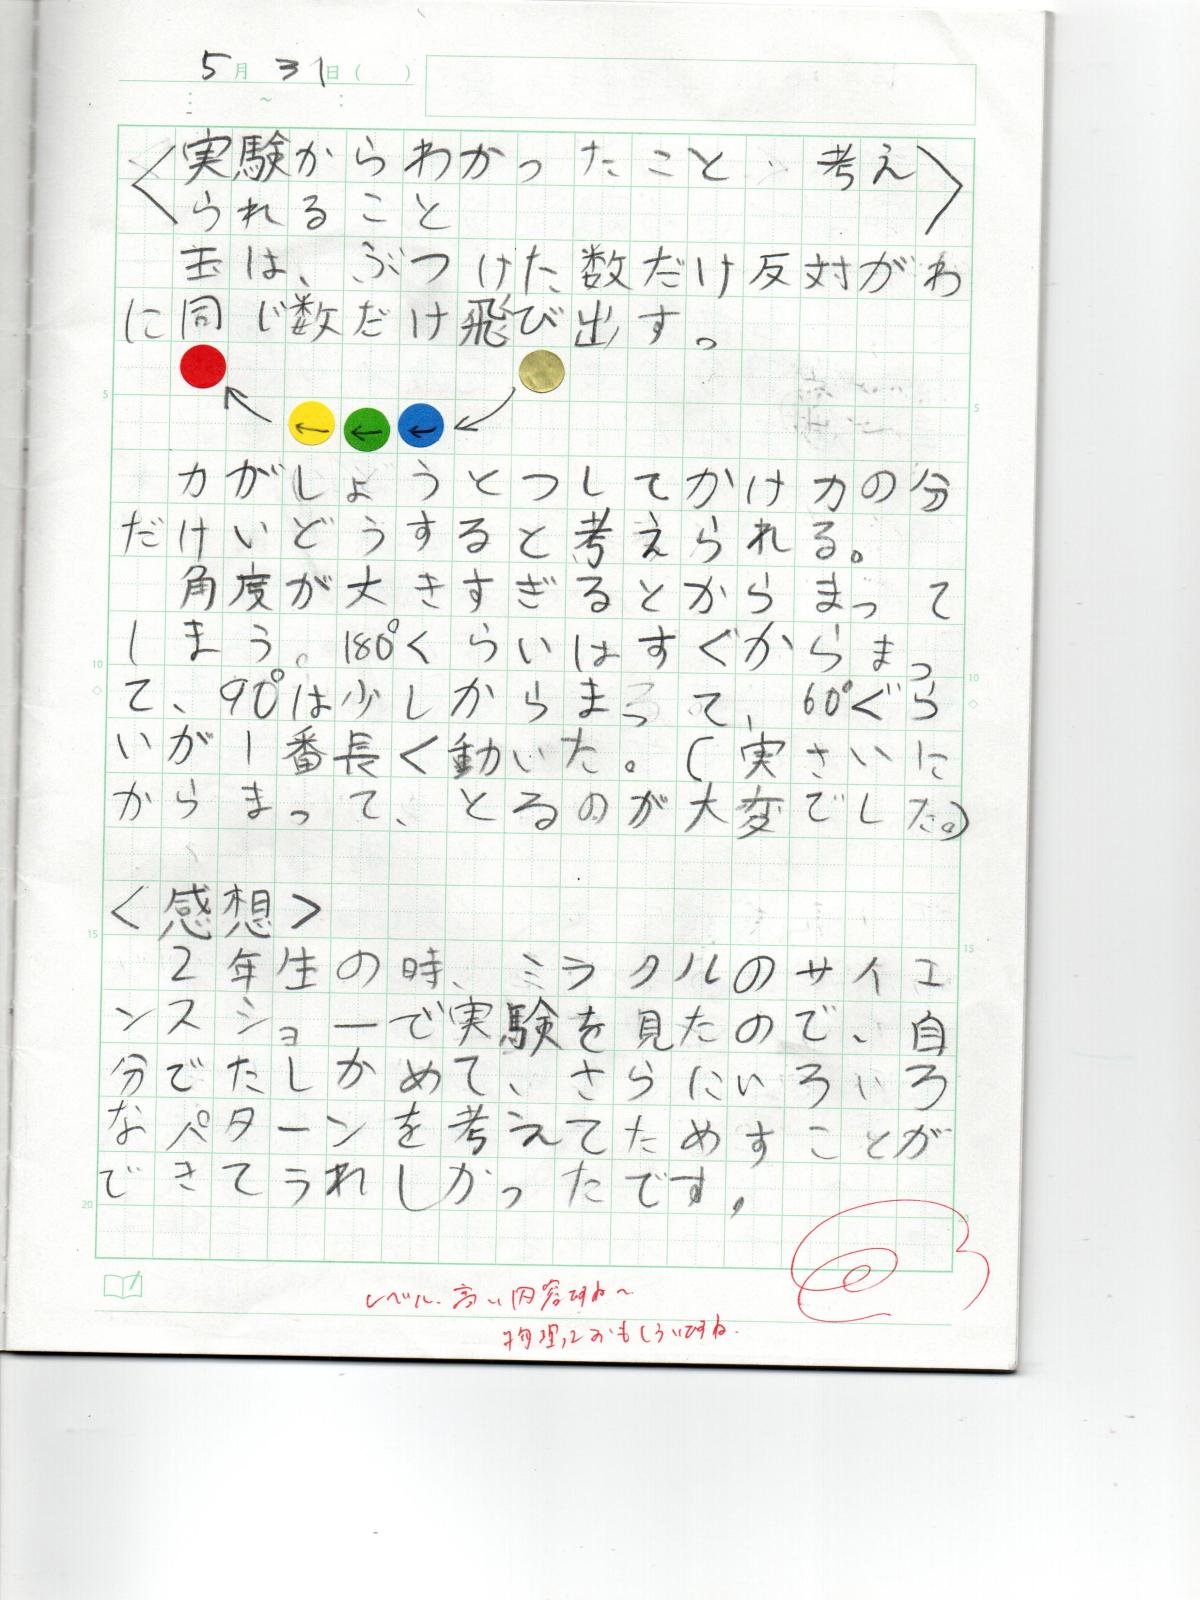 5月31日( )
: ~ :
〈実験からわかったこと、考え〉
られること
玉は、ぶつけた数だけ反対がわ
に同じ数だけ飛び出す。
5 5
力がしょうとつしてかけ力の分
だけいどうすると考えられる。
角度が大きすぎるとからまって
しまう。180°くらいはすぐからまっ
10 10
て、90°は少しからまって、60°ぐら
いが1番長く動いた。(実さいに
からまって、とるのが大変でした。)
<感想>
15 15
2年生の時、ミラクルのサイエ
ンスショーで実験を見たので、自
分でたしかめて、さらにいろいろ
なパターンを考えてためすことが
できてうれしかったです。
20 20
レベル高い内容ですね〜
物理っておもしろいですね。